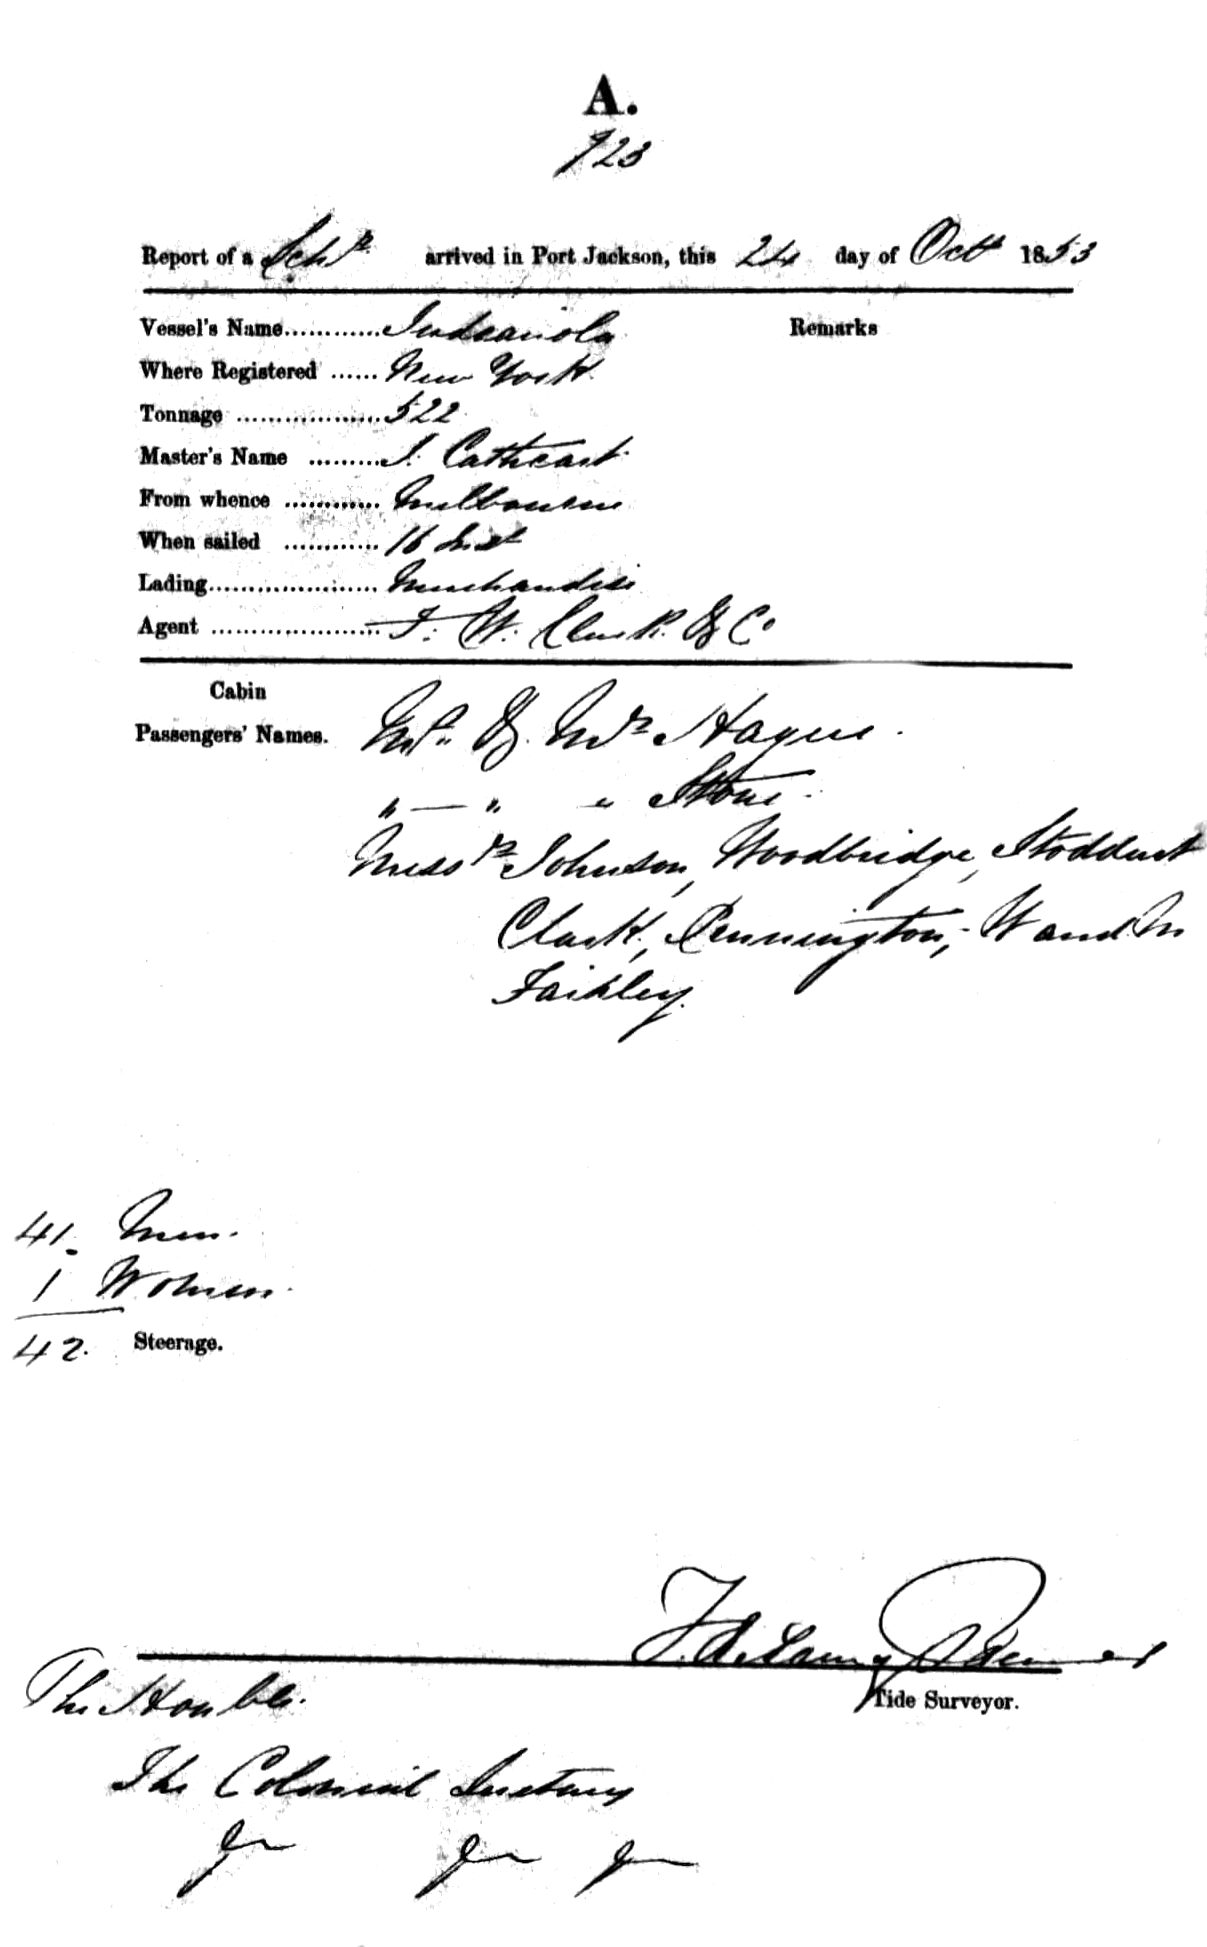 A.
723
Report of a Schr arrived in Port Jackson, this 24 day of Oct 1853
Vessel's Name............Indianola Remarks
Where Registered ......New York
Tonnage ..................522
Master's Name .........J. Cathcart
From whence ............Melbourne
When sailed ............16 Inst
Lading.....................Merchandise
Agent .....................F. W. Clark & Co
Cabin
Passengers' Names. Mr. & Mrs Hague.
" — " " Stone.
Messrs Johnson, Woodbridge, Stoddart
Clark, Pennington, W and M
Faikley.
41. Men.
1 Women.
42. Steerage.
Tide Surveyor.
The Honble.
The Colonial Secretary